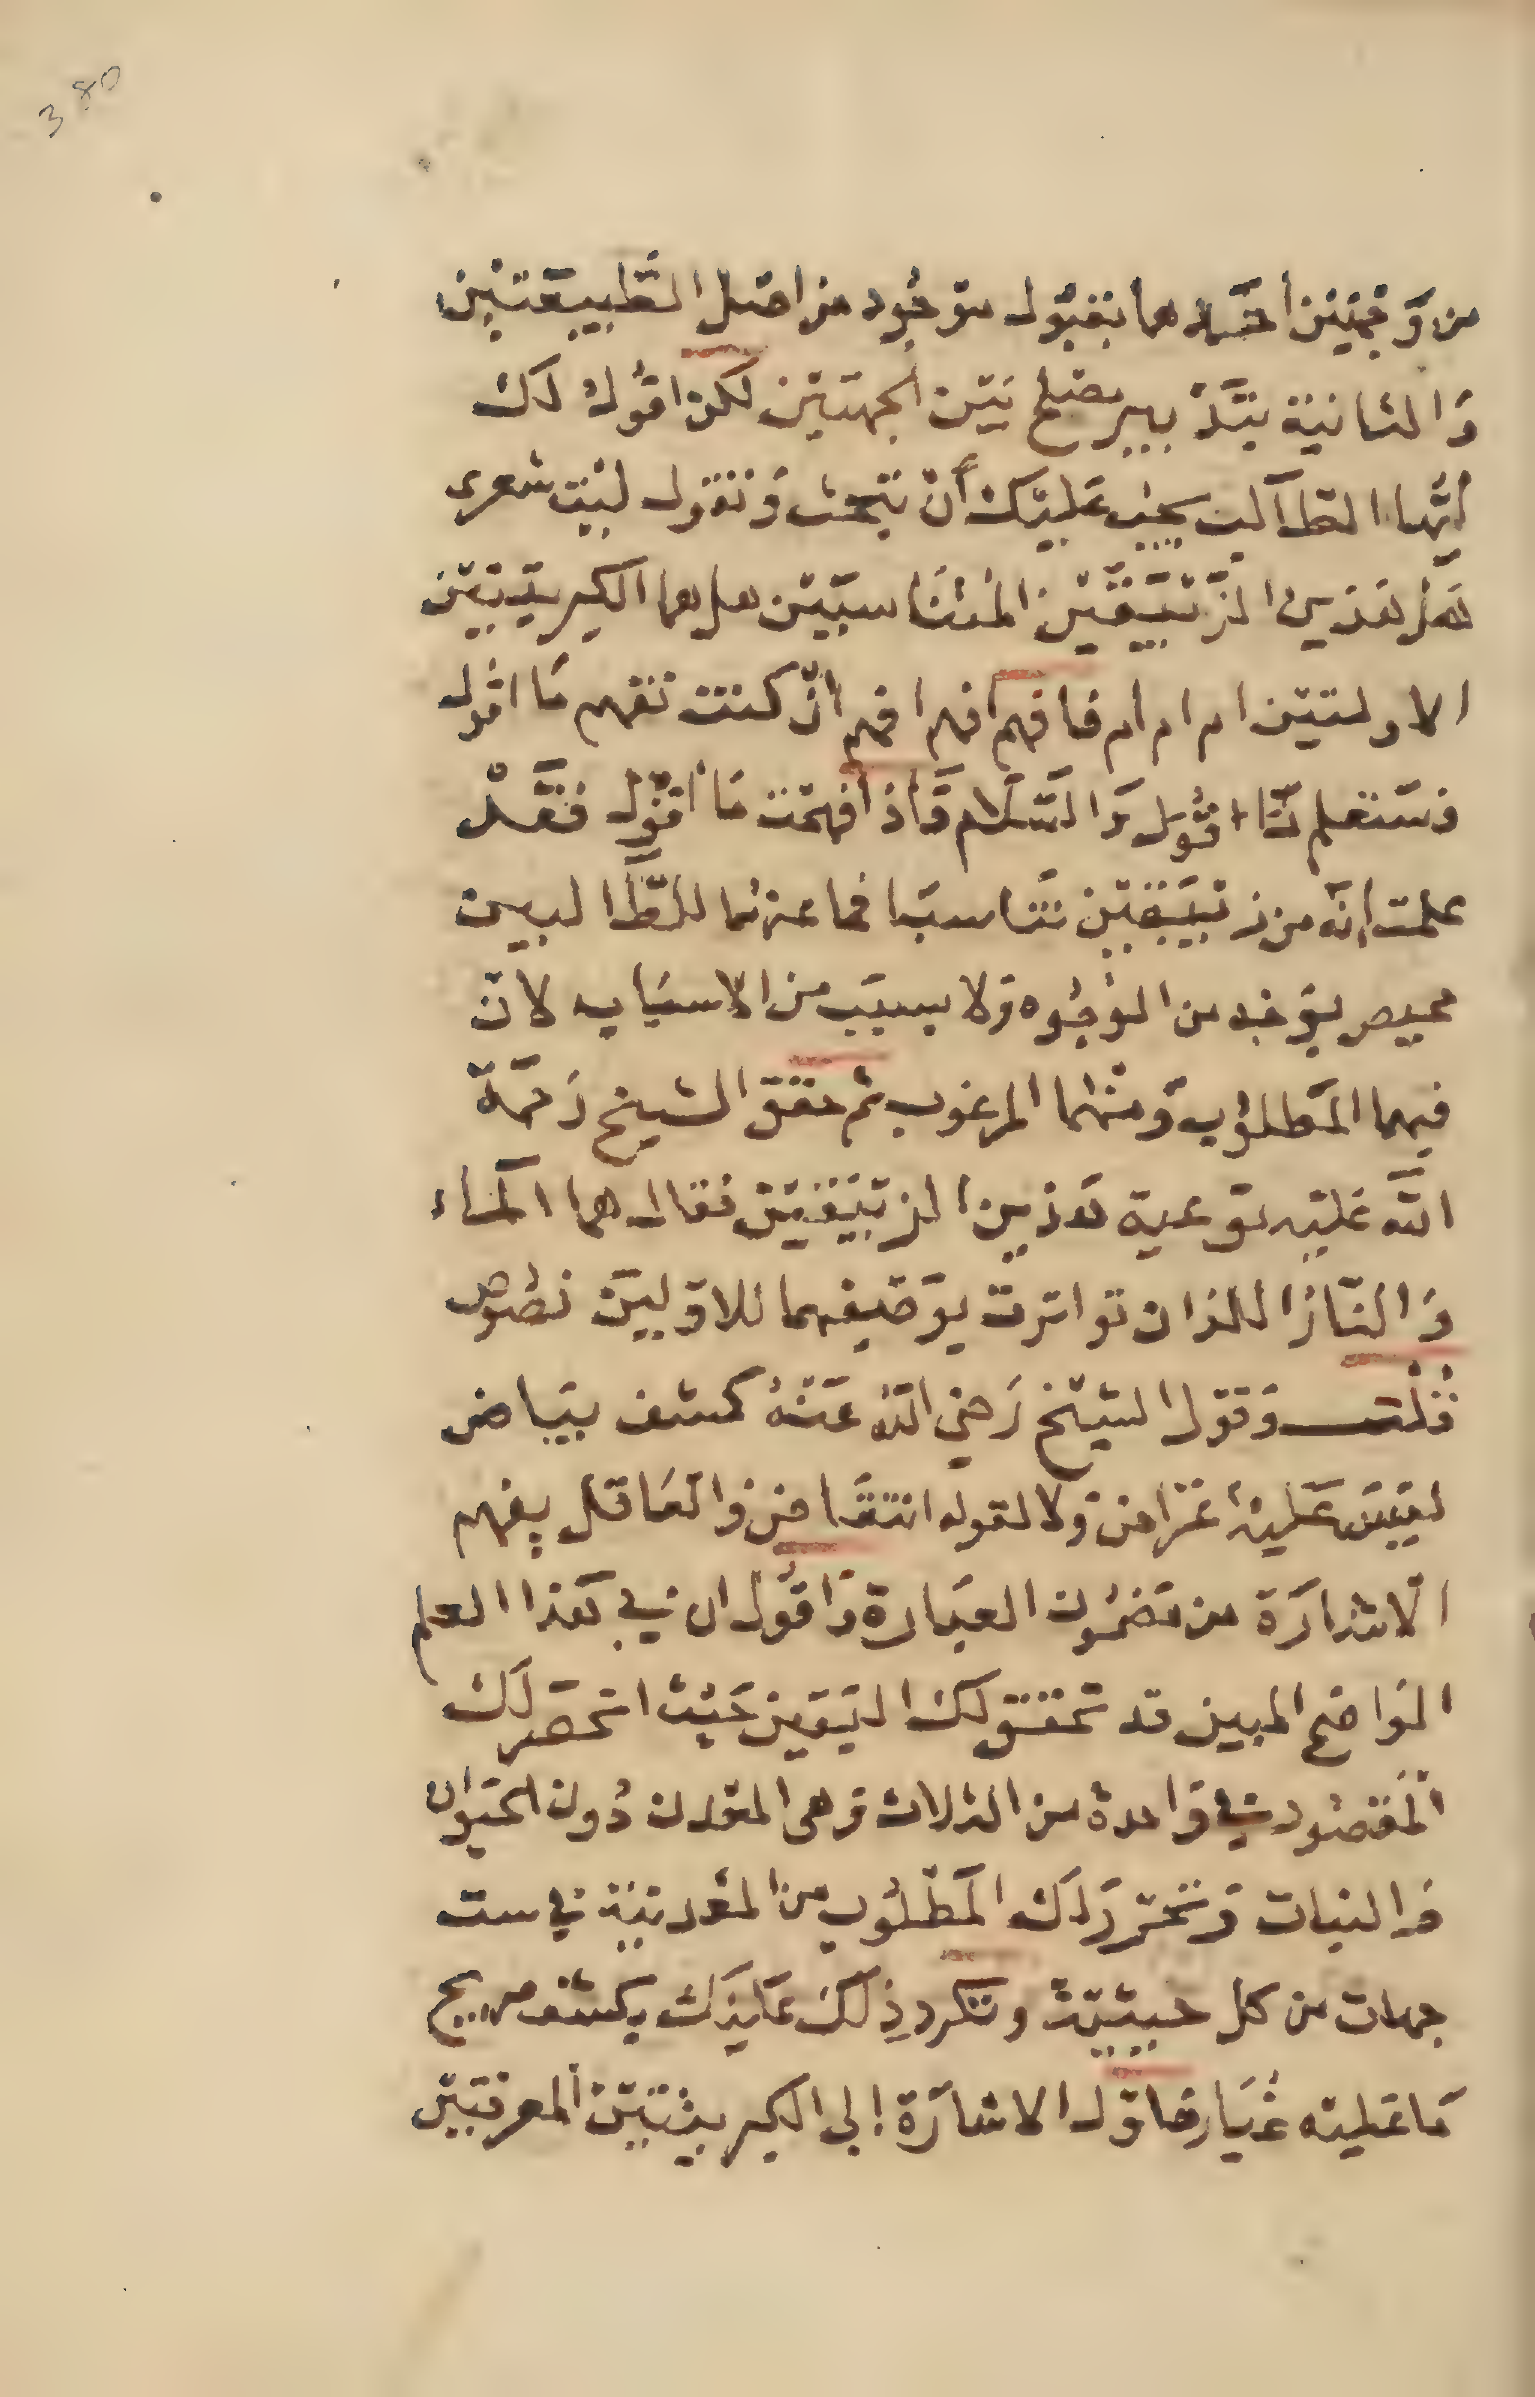 380
من وجهين أحدهما بقبول موجود من اصل الطبيعتين
والثانية بتدبير يصلح بين الجهتين لكن اقول لك
أيها الطالب يجب عليك أن تبحث وتقول ليت شعرى
هل هذين الزئبقين المتناسبين هل هما الكبريتين
الاولتين ام ام ام فافهم افهم افهم ان كنت تفهم ما اقول
فستعلم ما اقول والسلام واذا فهمت ما اقول فقد
علمت انه من زئبقين تناسبا فما عنهما للطالبين
محيص بوجه من الوجوه ولا بسبب من الاسباب لان
فيهما المطلوب ومنهما المرغوب ثم حقق الشيخ رحمة
الله عليه نوعية هذين الزئبقين فقال هما الماء
والنار اللذان تواترت بوصفهما للاولين نصوص
قلت وقول الشيخ رضي الله عنه كشف بياض
ليس عليه غرامن ولا لقوله انتقامن والعاقل يفهم
الاشارة من مضمون العبارة واقول ان في هذا العلم
الواضح المبين قد تحقق لك اليقين حيث انحصر لك
المقصود في واحدة من الثلاث وهى المعدن دون الحيوان
والنبات وتحرر لك المطلوب من المعدنية في ست
جهات من كل حيثية وتكرر ذلك عليك بكشف صريح
ما عليه غبار فاول الاشارة الى الكبريتين المعرفتين